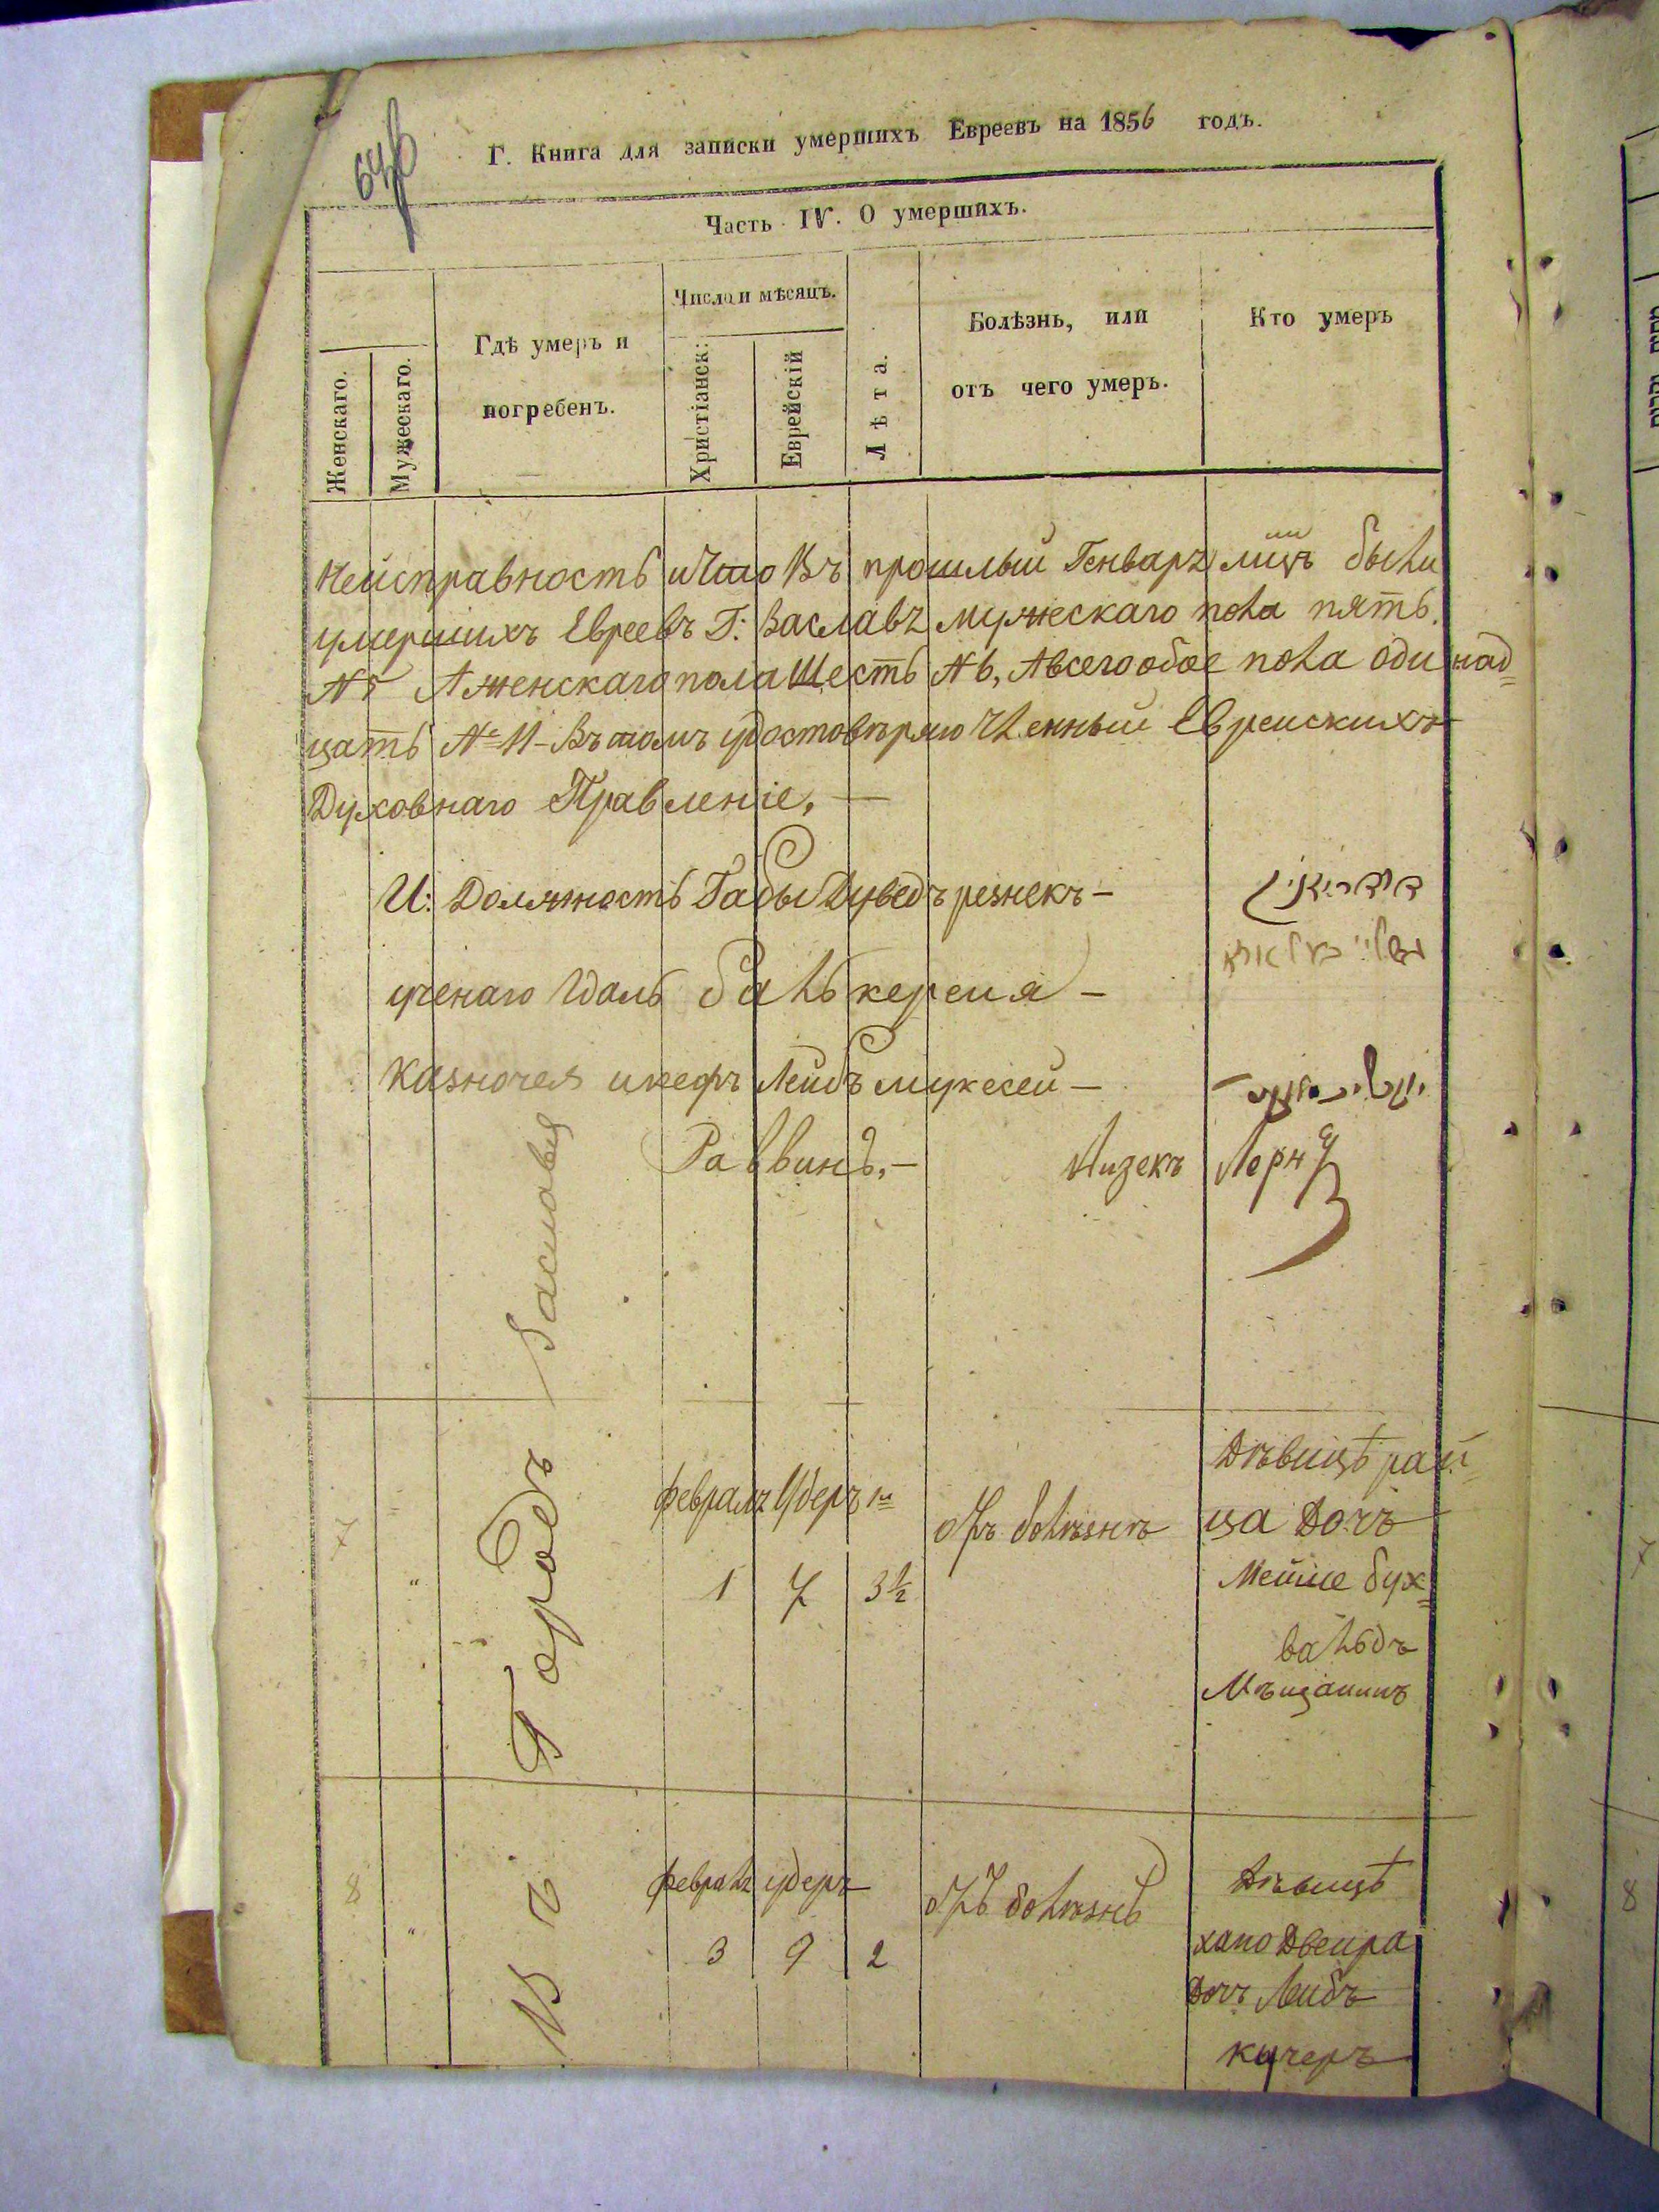 Г. Книга для записки умершихъ Евреевъ на 1856 годъ.
Часть IV. О умершихъ.
Женскаго.
Мужескаго.
Гдѣ умеръ и
погребенъ.
Число и мѣсяцъ.
Христіанск:
Еврейскій
Лѣта.
Болѣзнь, или
отъ чего умеръ.
Кто умеръ
Неисправность и что Въ прошлый Генварь мцъ были
умершихъ Евреевъ Г: Заславъ мужескаго пола пять.
№ 5 А женскаго пола Шесть № 6, А всего обое пола одинад=
цать № 11 - Въ томъ удостовѣряю Члены Евреискихъ
Духовнаго Правленіе, —
И: Должность Габы Дуведъ резнекъ —
ученаго Идаль
Казночея Лейбъ —
Раввинъ, — Айзекъ Лернъ
Въ Городъ Заславъ
7
"
Февраль Удеръ
1 7 3½
отъ болѣзнь
Дѣвицѣ рай=
ца Дочъ
Мейше бух=
вальдъ
Мѣщанинъ
8
"
Февраль удеръ
3 9 2
отъ болѣзнь
Дѣвицѣ
хано Двеира
Дочъ Лейбъ
кучеръ
7
8